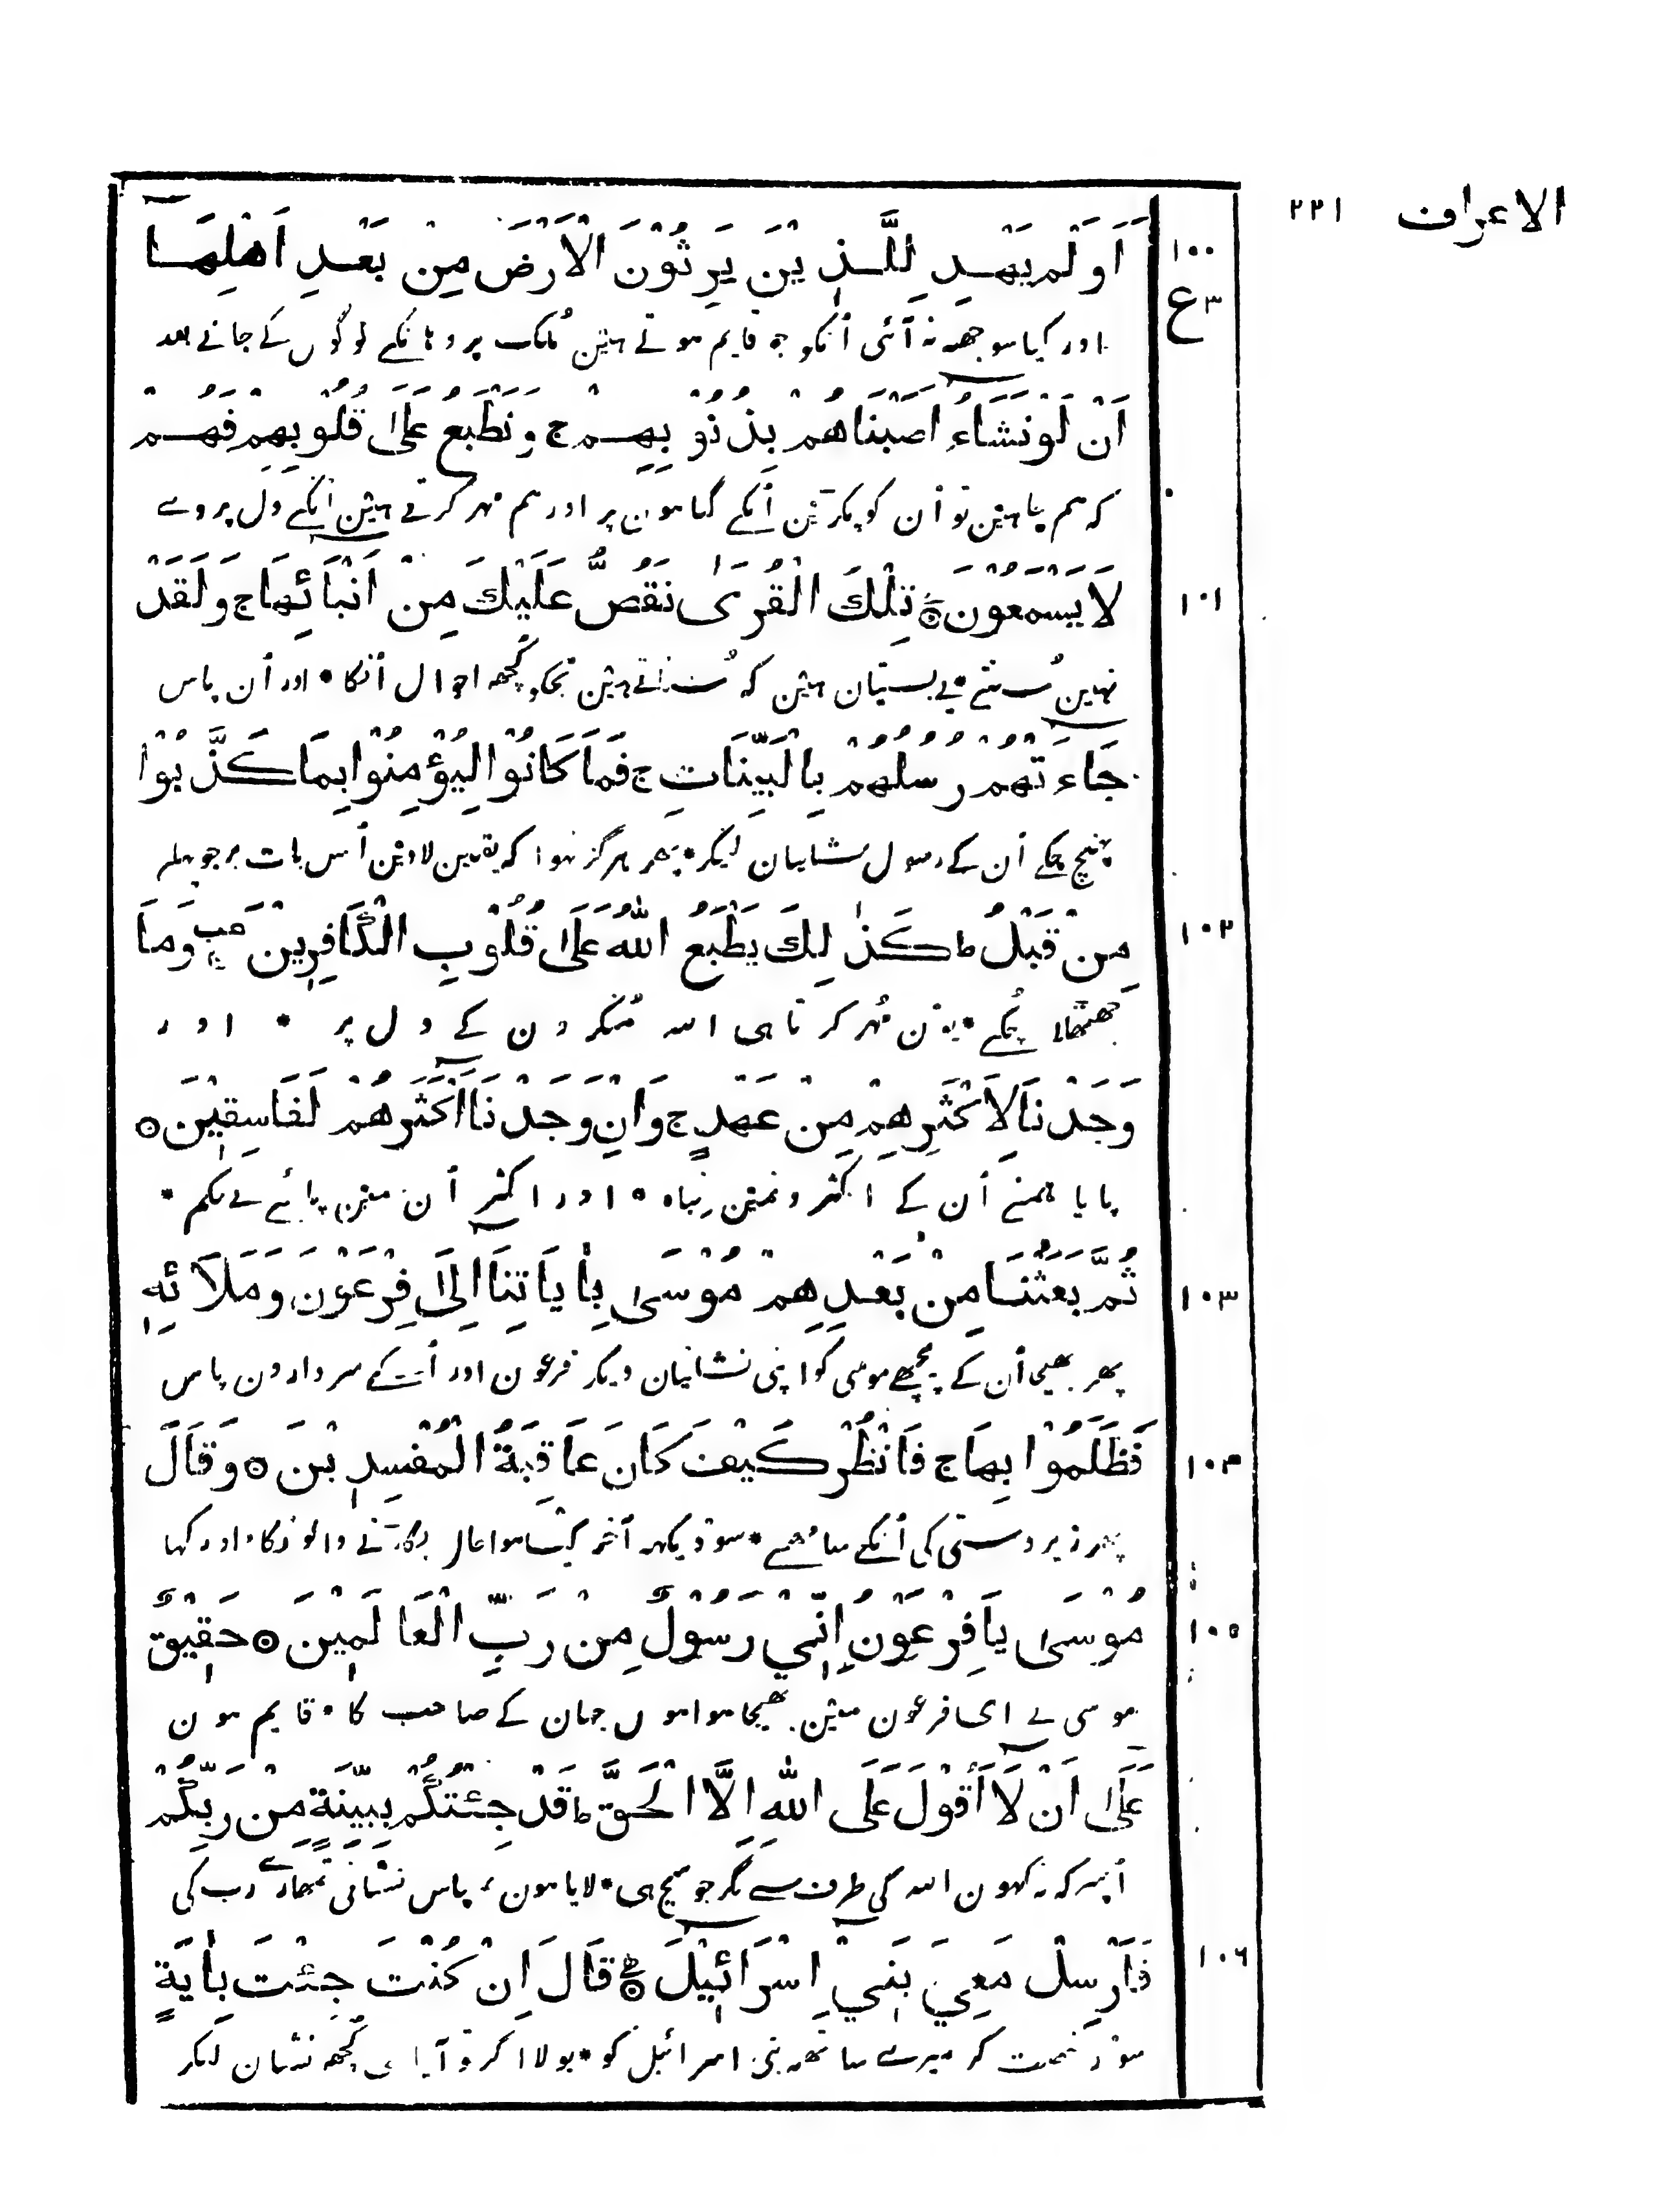 الاعراف ٢٢١
١٠٠
ع٣
اَوَلَمْ يَهْدِ لِلَّذِيْنَ يَرِثُوْنَ الْاَرْضَ مِنْ بَعْدِ اَهْلِهَا
اور کیا سوجھہ نہ آئی اُنکو جو قایم ہوتے ہیٔن مُلک پر وہانکے لوگوں کے جانے بعد
اَنْ لَوْ نَشَاءُ اَصَبْنَاهُمْ بِذُنُوْبِهِمْ ج وَنَطْبَعُ عَلَىٰ قُلُوْبِهِمْ فَهُمْ
کہ ہم چاہیٔن تو اُن کو پکڑیٔن اُنکے گناہوں پر اور ہم مہر کرتے ہیٔن اُنکے دل پر وے
١٠١
لَا يَسْمَعُوْنَ ۝ تِلْكَ الْقُرَىٰ نَقُصُّ عَلَيْكَ مِنْ اَنْبَائِهَا ج وَلَقَدْ
نہین سُنتے * یے بستیان ہیٔن کہ سُناتے ہیٔن تجکو کُچھہ احوال اُنکا * اور اُن پاس
جَاءَتْهُمْ رُسُلُهُمْ بِالْبَيِّنَاتِ ج فَمَا كَانُوْا لِيُؤْمِنُوْا بِمَا كَذَّبُوْا
پہنچ چکے اُن کے رسول نشانیان لیکر * پھر ہرگز نہوا کہ یقین لاویٔن اُس بات پر جو پہلے
١٠٢
مِنْ قَبْلُ ط كَذٰلِكَ يَطْبَعُ اللهُ عَلَىٰ قُلُوْبِ الْكَافِرِيْنَ ۝ وَمَا
جھٹھلا چُکے * یؤن مُہر کرتا ہی اللہ مُنکروں کے دل پر * اور
وَجَدْنَا لِاَكْثَرِهِمْ مِنْ عَهْدٍ ج وَاِنْ وَجَدْنَا اَكْثَرَهُمْ لَفَاسِقِيْنَ ۝
پایا ہمنے اُن کے اکثرونمیٔن نِباہ * اور اکثر اُن میٔن پائے بےحکم *
١٠٣
ثُمَّ بَعَثْنَا مِنْ بَعْدِهِمْ مُوْسَىٰ بِاٰيَاتِنَا اِلَىٰ فِرْعَوْنَ وَمَلَائِهِ
پھر بھیجا اُن کے پیچھے موسی کو اپنی نشانیان دیکر فرعون اور اُسکے سرداروں پاس
١٠٤
فَظَلَمُوْا بِهَا ج فَانْظُرْ كَيْفَ كَانَ عَاقِبَةُ الْمُفْسِدِيْنَ ۝ وَقَالَ
پھر زبردستی کی اُنکے سامنھے * سو دیکھہ آخر کیٔسا ہوا حال بگاڑنے والونکا * اور کہا
١٠٥
مُوْسَىٰ يَا فِرْعَوْنُ اِنِّيْ رَسُوْلٌ مِنْ رَبِّ الْعَالَمِيْنَ ۝ حَقِيْقٌ
موسی نے ای فرعون میٔن بھیجا ہوا ہوں جہان کے صاحب کا * قایم ہون
عَلَىٰ اَنْ لَا اَقُوْلَ عَلَى اللهِ اِلَّا الْحَقَّ ط قَدْ جِئْتُكُمْ بِبَيِّنَةٍ مِنْ رَبِّكُمْ
اُسپر کہ نہ کہون اللہ کی طرف سے مگر جو سچ ہی * لایا ہون پاس نشانی تمھارے رب کی
١٠٦
فَاَرْسِلْ مَعِيَ بَنِيْ اِسْرَائِيْلَ ۝ قَالَ اِنْ كُنْتَ جِئْتَ بِاٰيَةٍ
سو رخصت کر میرے ساتھہ بنی اسرائیل کو * بولا اگر تو آیا ہی کُچھہ نشان لیکر